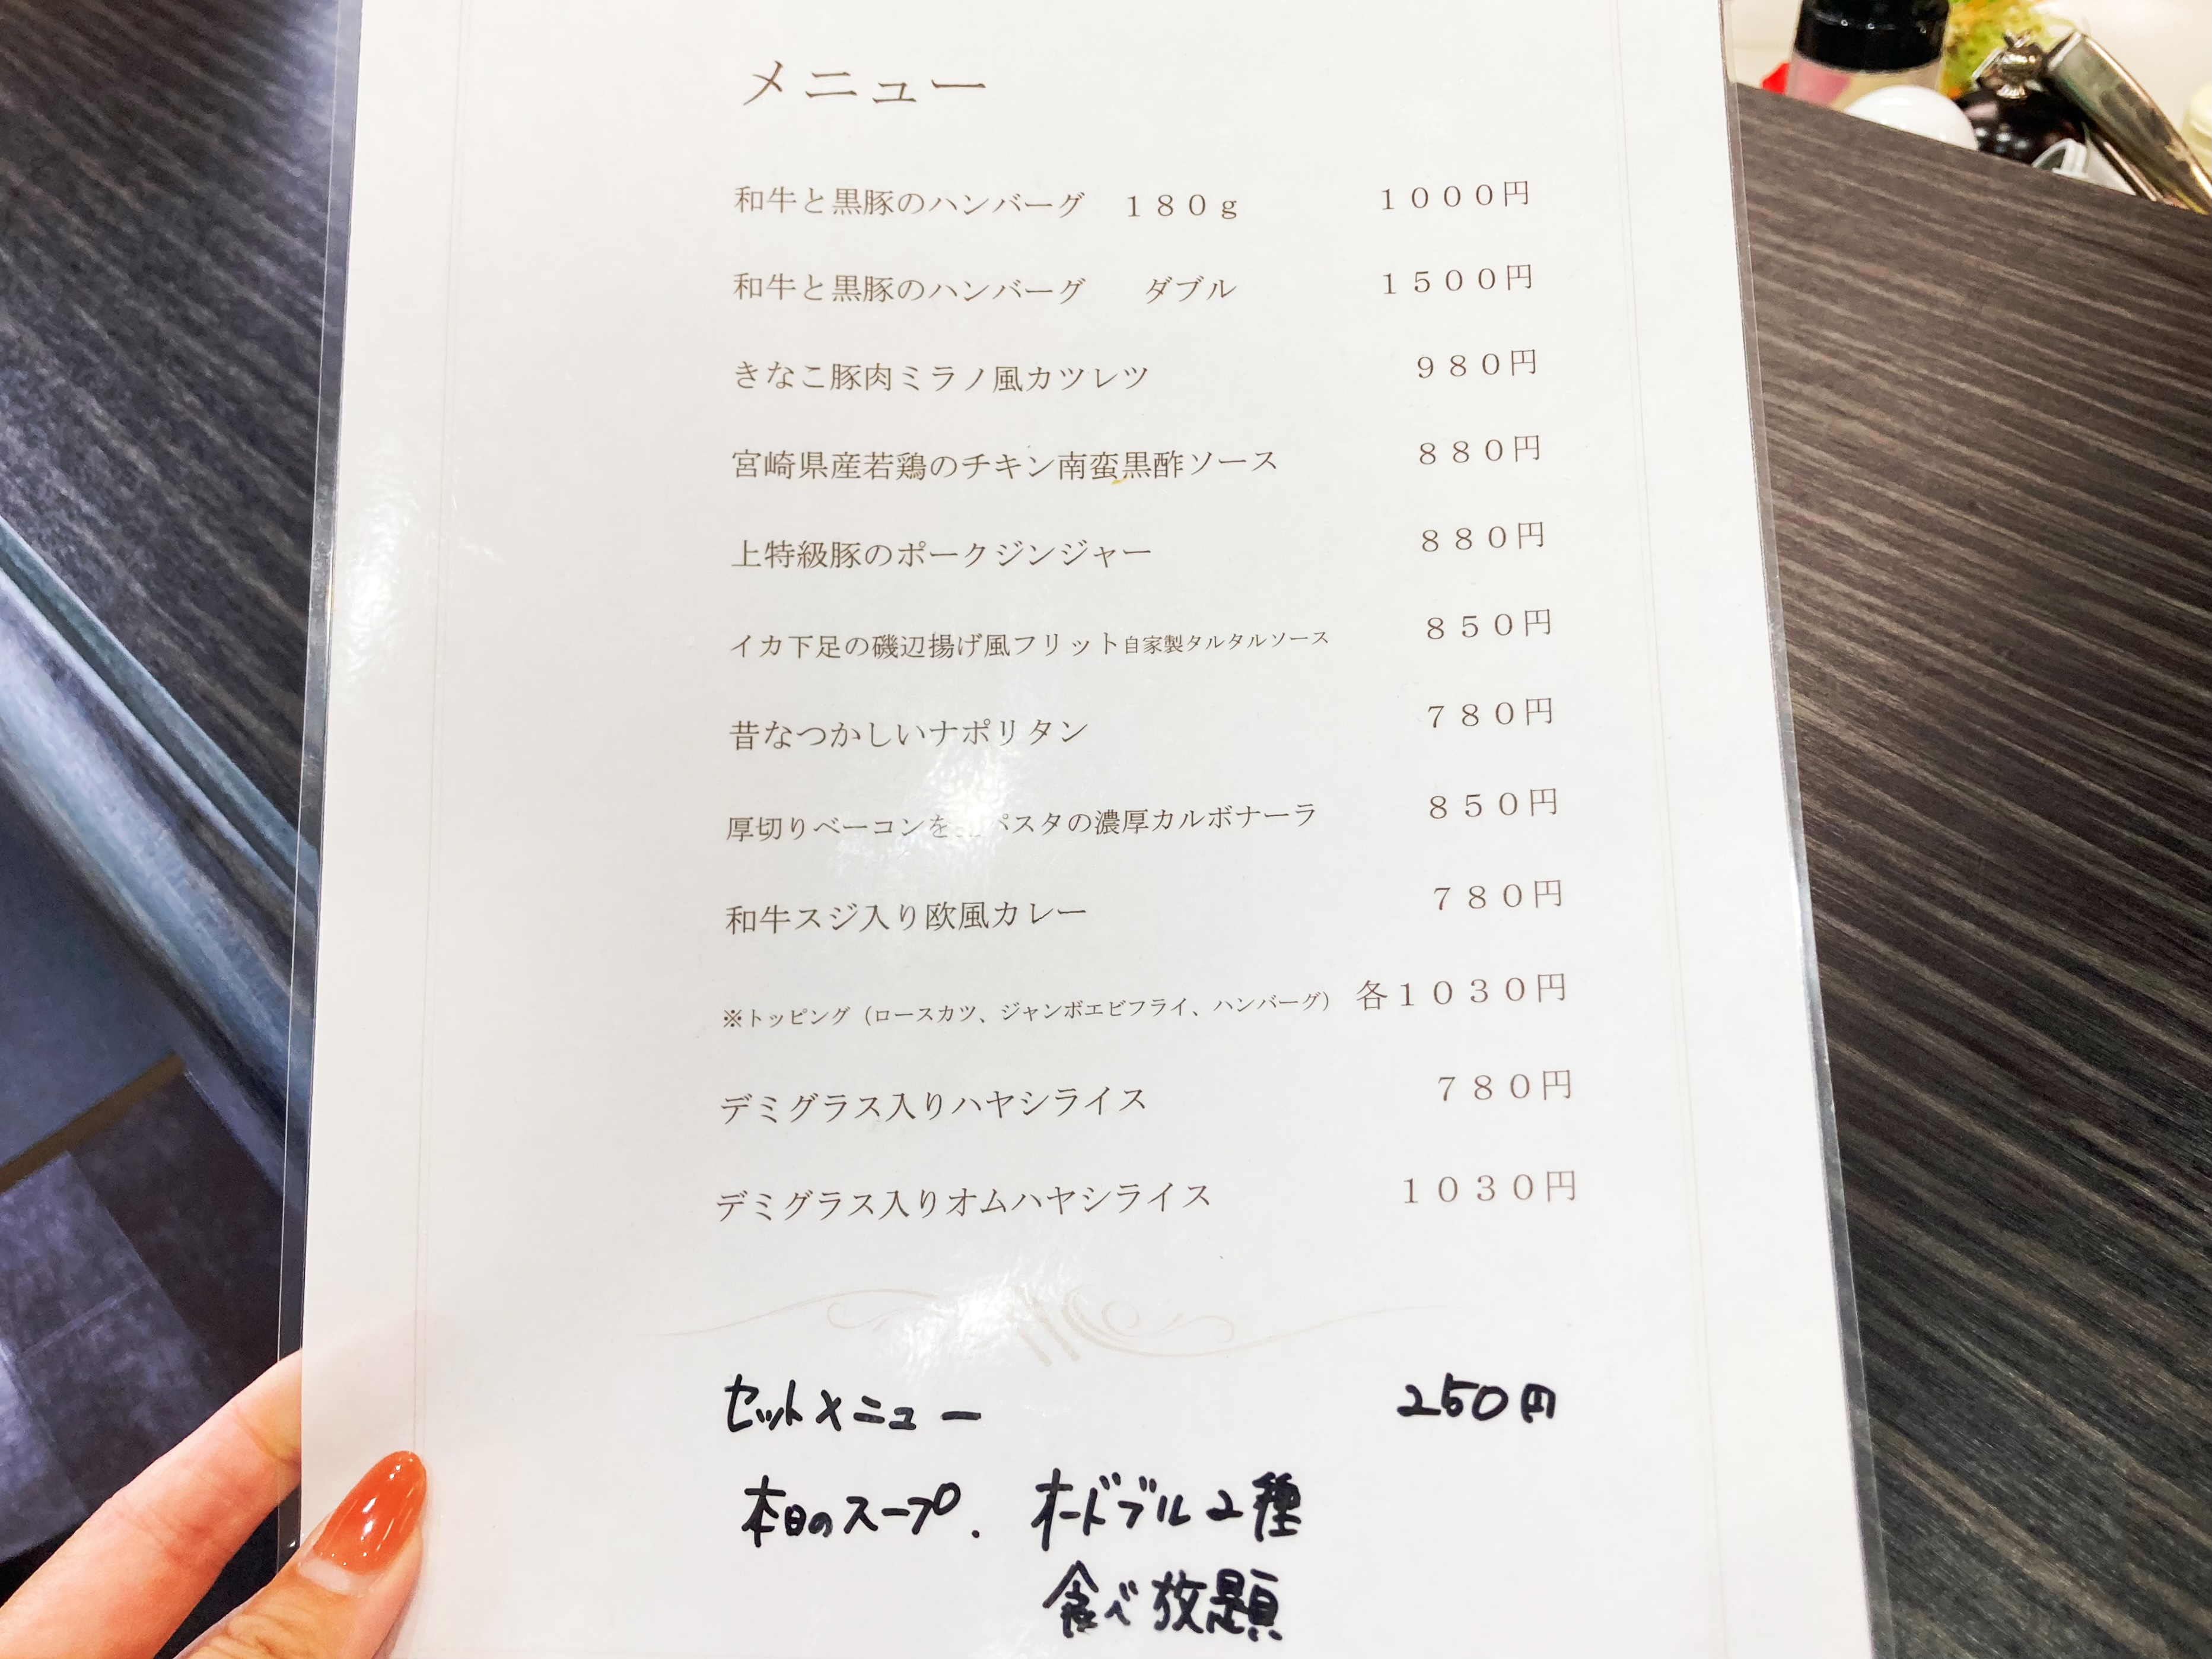 メニュー
和牛と黒豚のハンバーグ　１８０ｇ　１０００円
和牛と黒豚のハンバーグ　ダブル　１５００円
きなこ豚肉ミラノ風カツレツ　９８０円
宮崎県産若鶏のチキン南蛮黒酢ソース　８８０円
上特級豚のポークジンジャー　８８０円
イカ下足の磯辺揚げ風フリット自家製タルタルソース　８５０円
昔なつかしいナポリタン　７８０円
厚切りベーコンを パスタの濃厚カルボナーラ　８５０円
和牛スジ入り欧風カレー　７８０円
※トッピング（ロースカツ、ジャンボエビフライ、ハンバーグ）　各１０３０円
デミグラス入りハヤシライス　７８０円
デミグラス入りオムハヤシライス　１０３０円
セットメニュー　250円
本日のスープ. オードブル2種
食べ放題